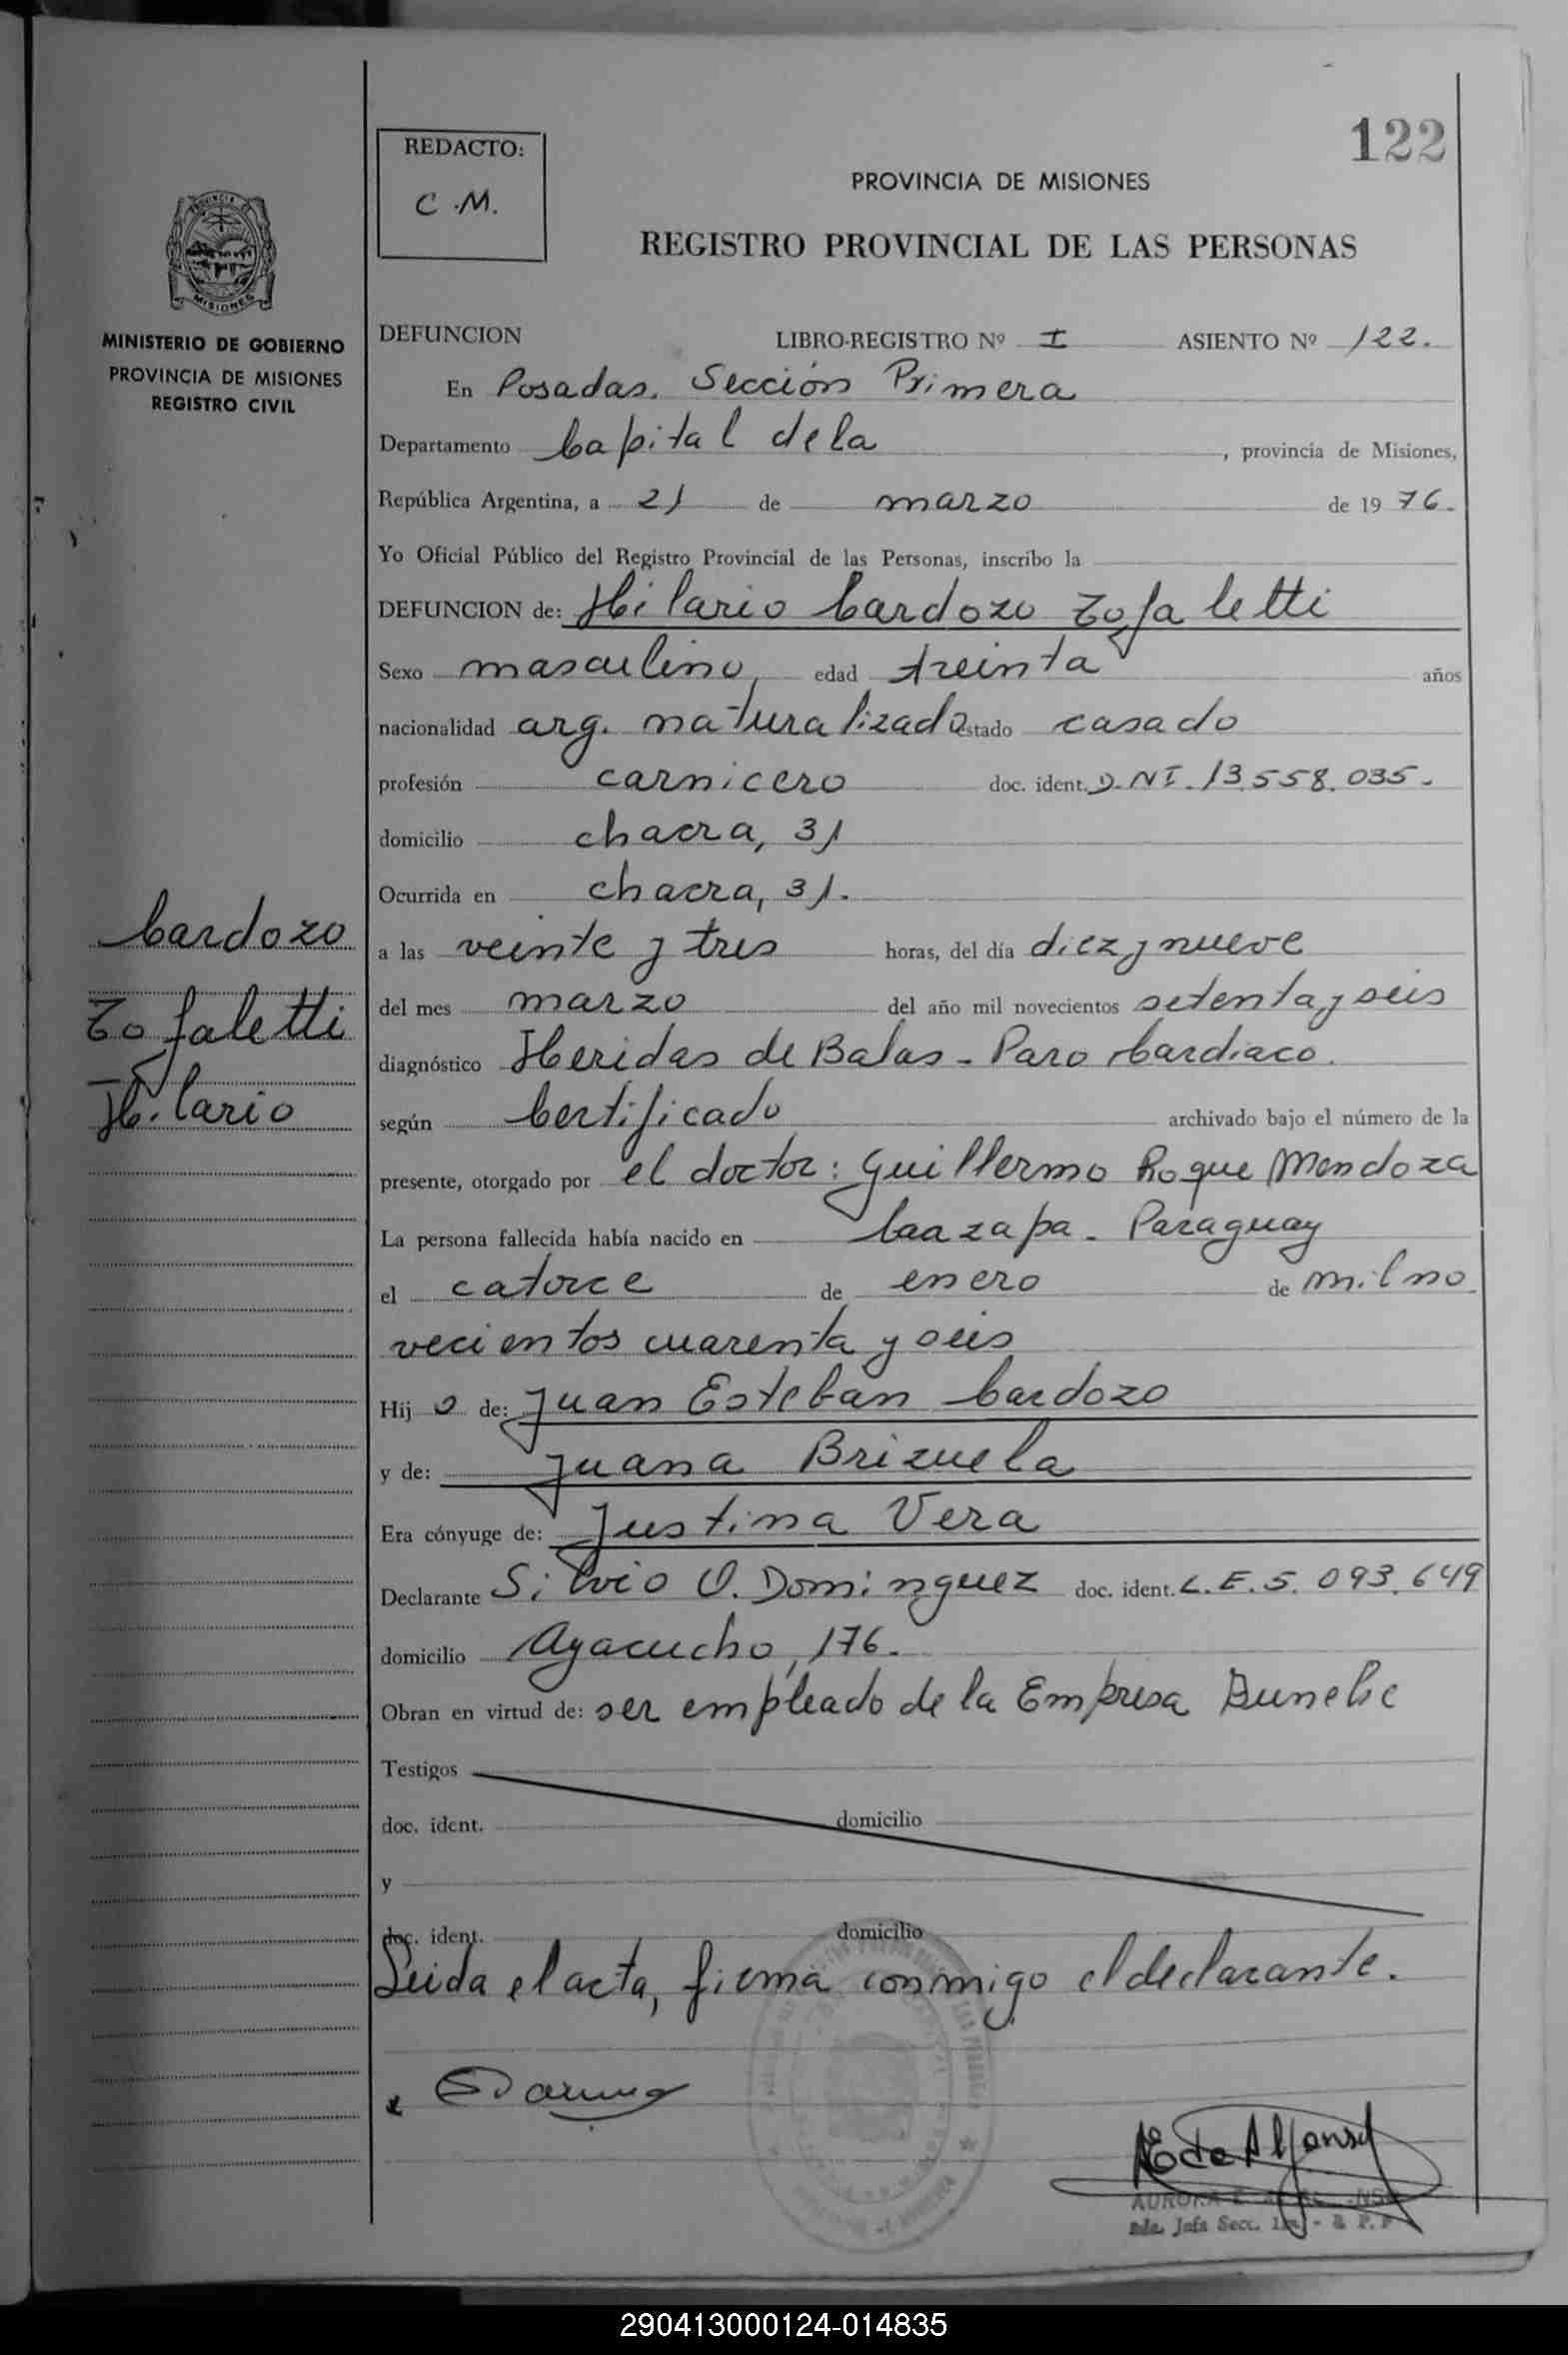 122
REDACTO:
C.M.
PROVINCIA DE MISIONES
REGISTRO PROVINCIAL DE LAS PERSONAS
MISIONES
MINISTERIO DE GOBIERNO
PROVINCIA DE MISIONES
REGISTRO CIVIL
DEFUNCION LIBRO-REGISTRO Nº I ASIENTO Nº 122.
En Posadas. Sección Primera
Departamento Capital dela, provincia de Misiones,
República Argentina, a 21 de marzo de 1976.
Yo Oficial Público del Registro Provincial de las Personas, inscribo la
DEFUNCION de: Hilario Cardozo Zofaletti
Sexo masculino, edad treinta años
nacionalidad arg. naturalizado estado casado
profesión carnicero doc. ident. D.NI. 13.558.035.
domicilio chacra, 31
Ocurrida en chacra, 31.
Cardozo
Zofaletti
Hilario
a las veinte y tres horas, del día diez y nueve
del mes marzo del año mil novecientos setenta y seis
diagnóstico Heridas de Balas - Paro Cardiaco.
según Certificado archivado bajo el número de la
presente, otorgado por el doctor: Guillermo Roque Mendoza
La persona fallecida había nacido en Caazapa - Paraguay
el catorce de enero de mil no
vecientos cuarenta y seis
Hijo de: Juan Esteban Cardozo
y de: Juana Brizuela
Era cónyuge de: Justina Vera
Declarante Silvio O. Dominguez doc. ident. L.E.5.093.649
domicilio Ayacucho, 176.
Obran en virtud de: ser empleado de la Empresa
Testigos
doc. ident. domicilio
y
doc. ident. domicilio
Leida el acta, firma conmigo el declarante.
E de Alfonso
AURORA E
Jefa Secc. 1
290413000124-014835